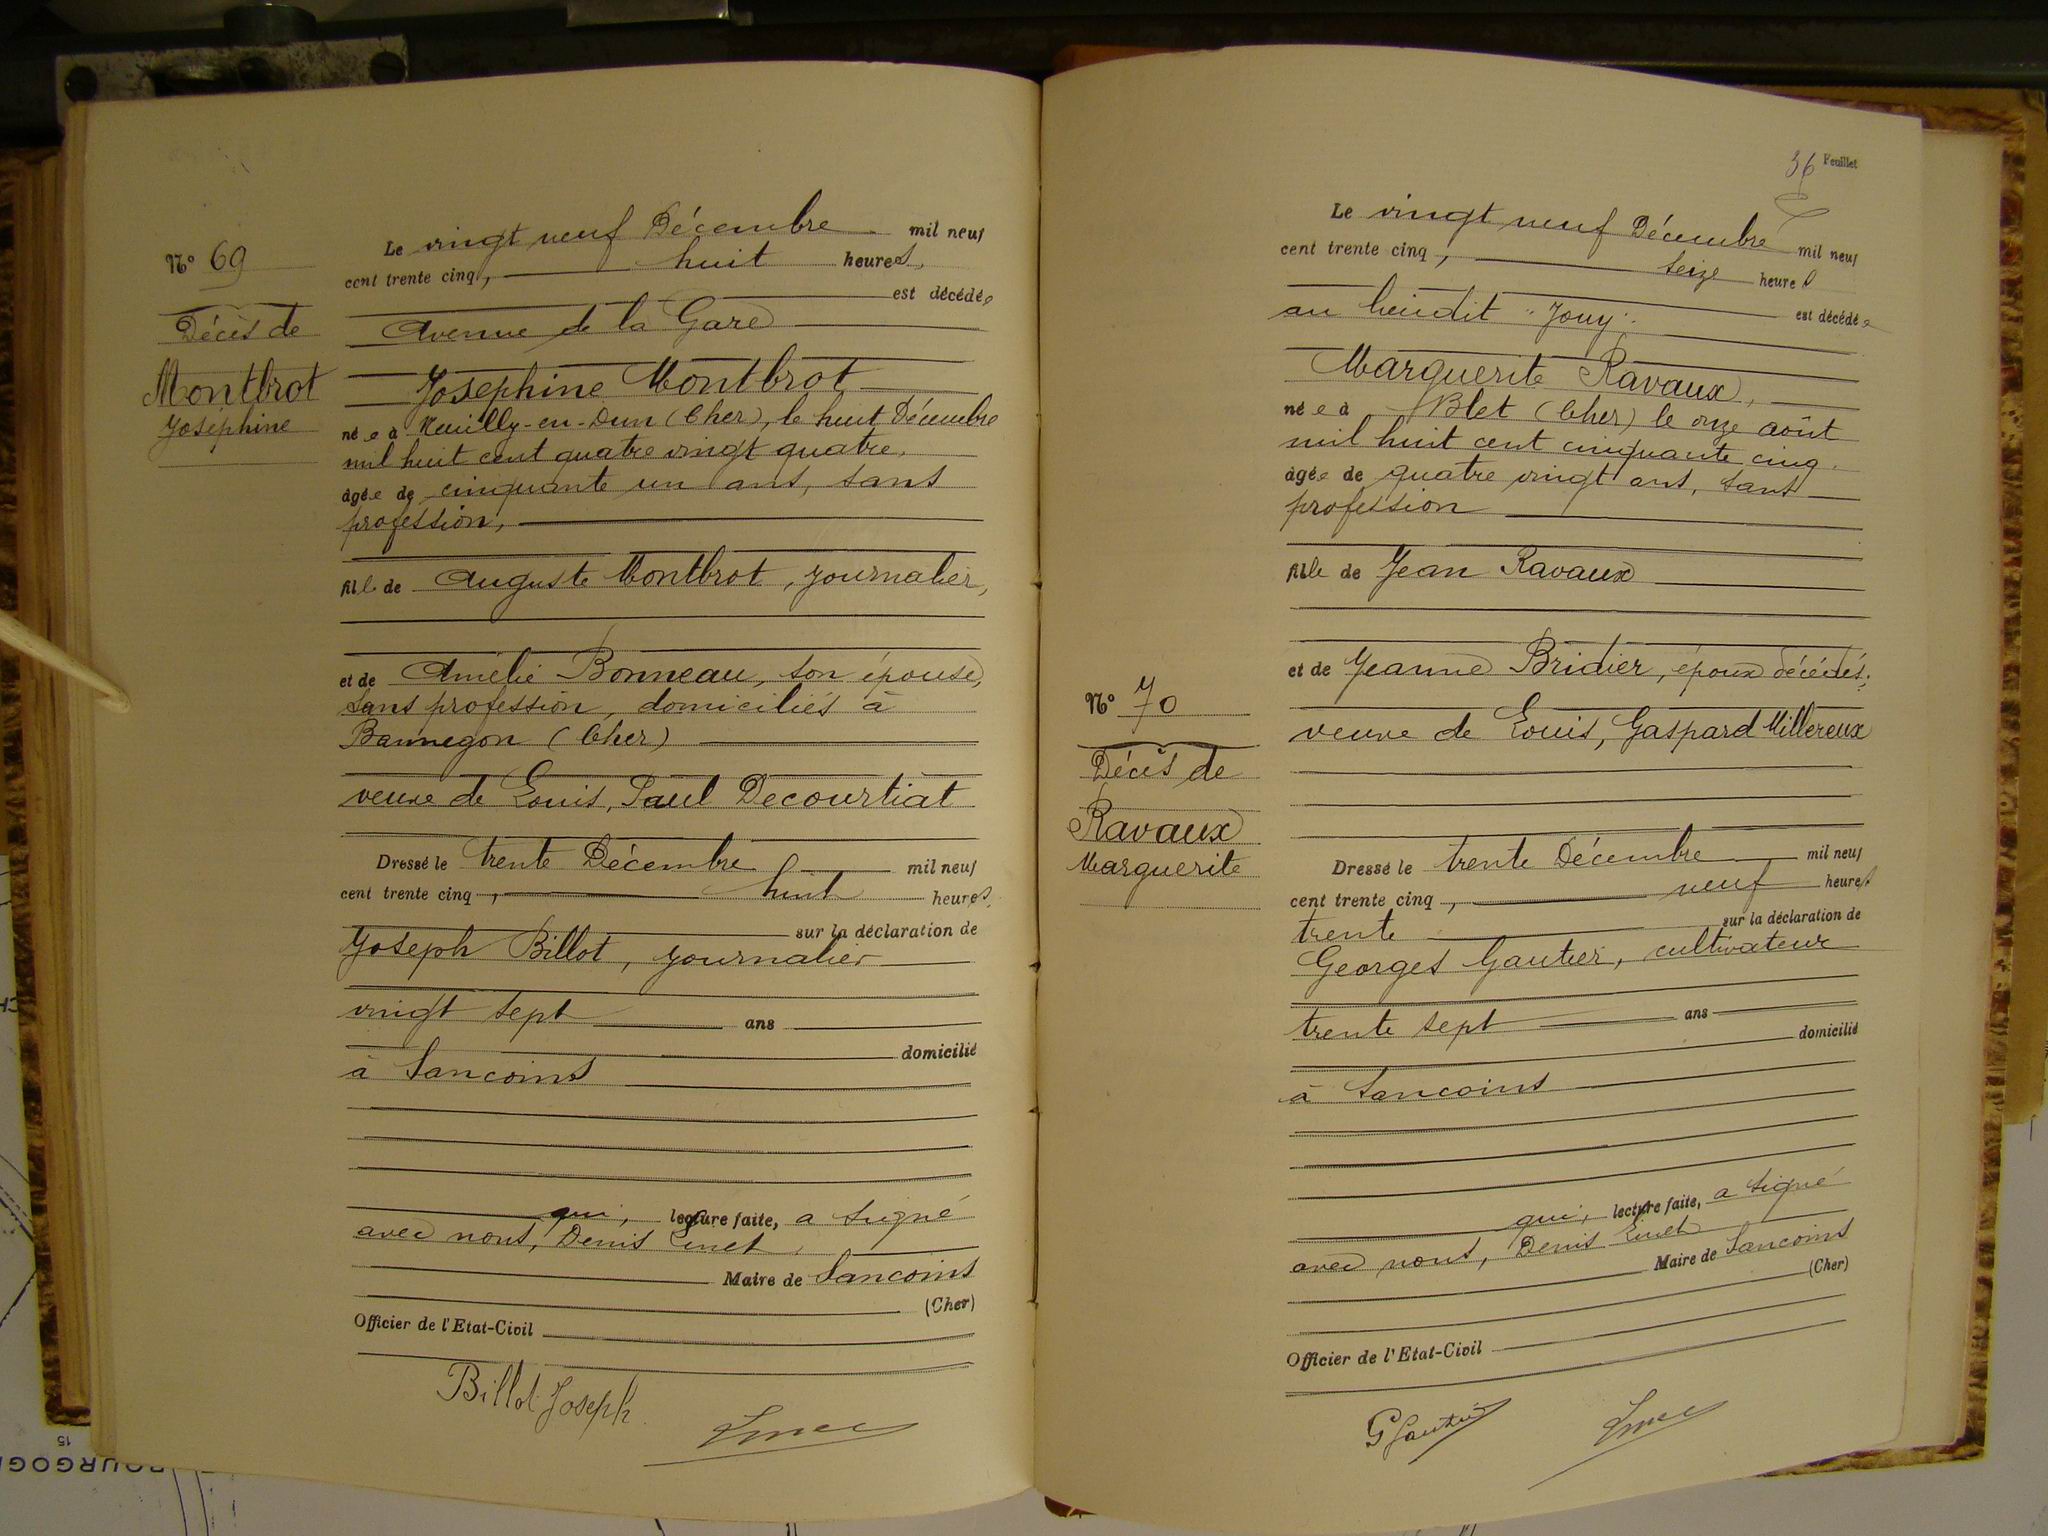 N° 69
Décès de
Montbrot
Joséphine
Le vingt neuf Décembre mil neuf
cent trente cinq, huit heures,
est décédée
Avenue de la Gare
Joséphine Montbrot
née à Neuilly-en-Dun (Cher), le huit Décembre
mil huit cent quatre vingt quatre,
âgée de cinquante un ans, sans
profession,
fille de Auguste Montbrot, journalier,
et de Amélie Bonneau, son épouse,
sans profession, domiciliés à
Bannegon (Cher)
veuve de Louis, Paul Decourtiat
Dressé le trente Décembre mil neuf
cent trente cinq, huit heures,
sur la déclaration de
Joseph Billot, journalier
vingt sept ans
domicilié
à Sancoins
qui, lecture faite, a signé
avec nous, Denis Linet,
Maire de Sancoins
(Cher)
Officier de l'Etat-Civil
Billot Joseph
36 Feuillet
N° 70
Décès de
Ravaux
Marguerite
Le vingt neuf Décembre mil neuf
cent trente cinq, seize heures
est décédée
au lieudit "Jouy",
Marguerite Ravaux,
née à Blet (Cher) le onze août
mil huit cent cinquante cinq.
âgée de quatre vingt ans, sans
profession
fille de Jean Ravaux
et de Jeanne Bridier, époux décédés;
veuve de Louis, Gaspard Millereux
Dressé le trente Décembre mil neuf
cent trente cinq, neuf heures
trente sur la déclaration de
Georges Gautier, cultivateur
trente sept ans
domicilié
à Sancoins
qui, lecture faite, a signé
avec nous, Denis Linet
Maire de Sancoins
(Cher)
Officier de l'Etat-Civil
G Gautier
15